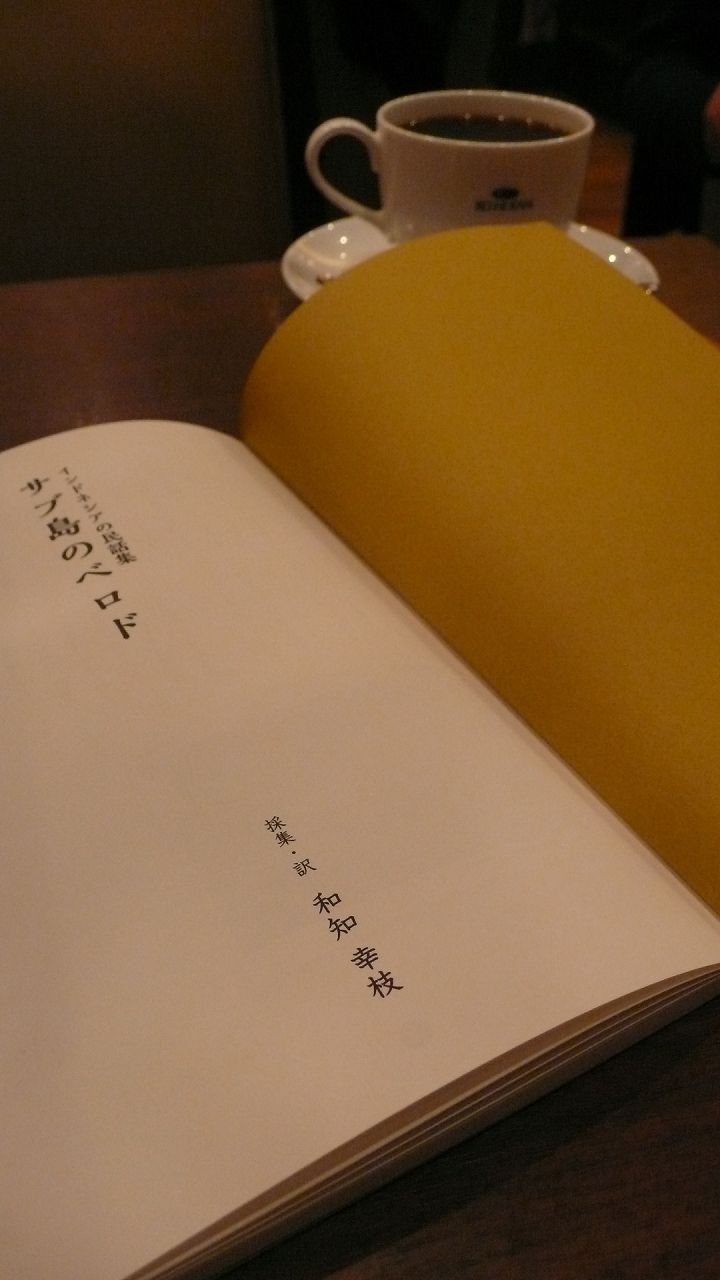 インドネシアの民話集
サブ島のベロド
採集・訳 和知 幸枝